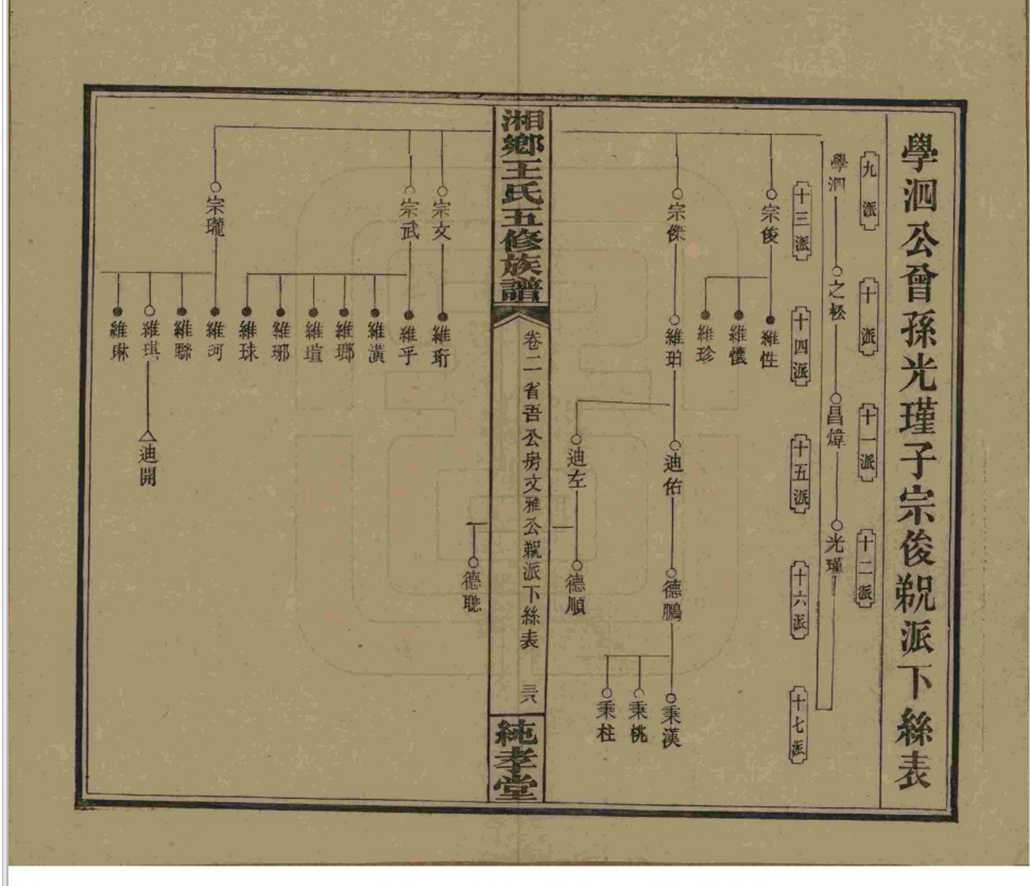 學泗公曾孫光瑾子宗俊覡派下絲表
九派
十派
十一派
十二派
學泗
之松
昌煒
光瑾
十三派
十四派
十五派
十六派
十七派
宗俊
維性
維懷
維珍
宗傑
維珀
迪佑
德鵬
秉漢
秉桃
秉柱
迪左
德順
湘鄉王氏五修族譜
卷二省吾公房文雅公覡派下絲表
三六
純孝堂
德聰
宗文
維珩
宗武
維乎
維潢
維瑯
維瑄
維琊
維球
宗瓏
維河
維聯
維琪
維琳
迪開